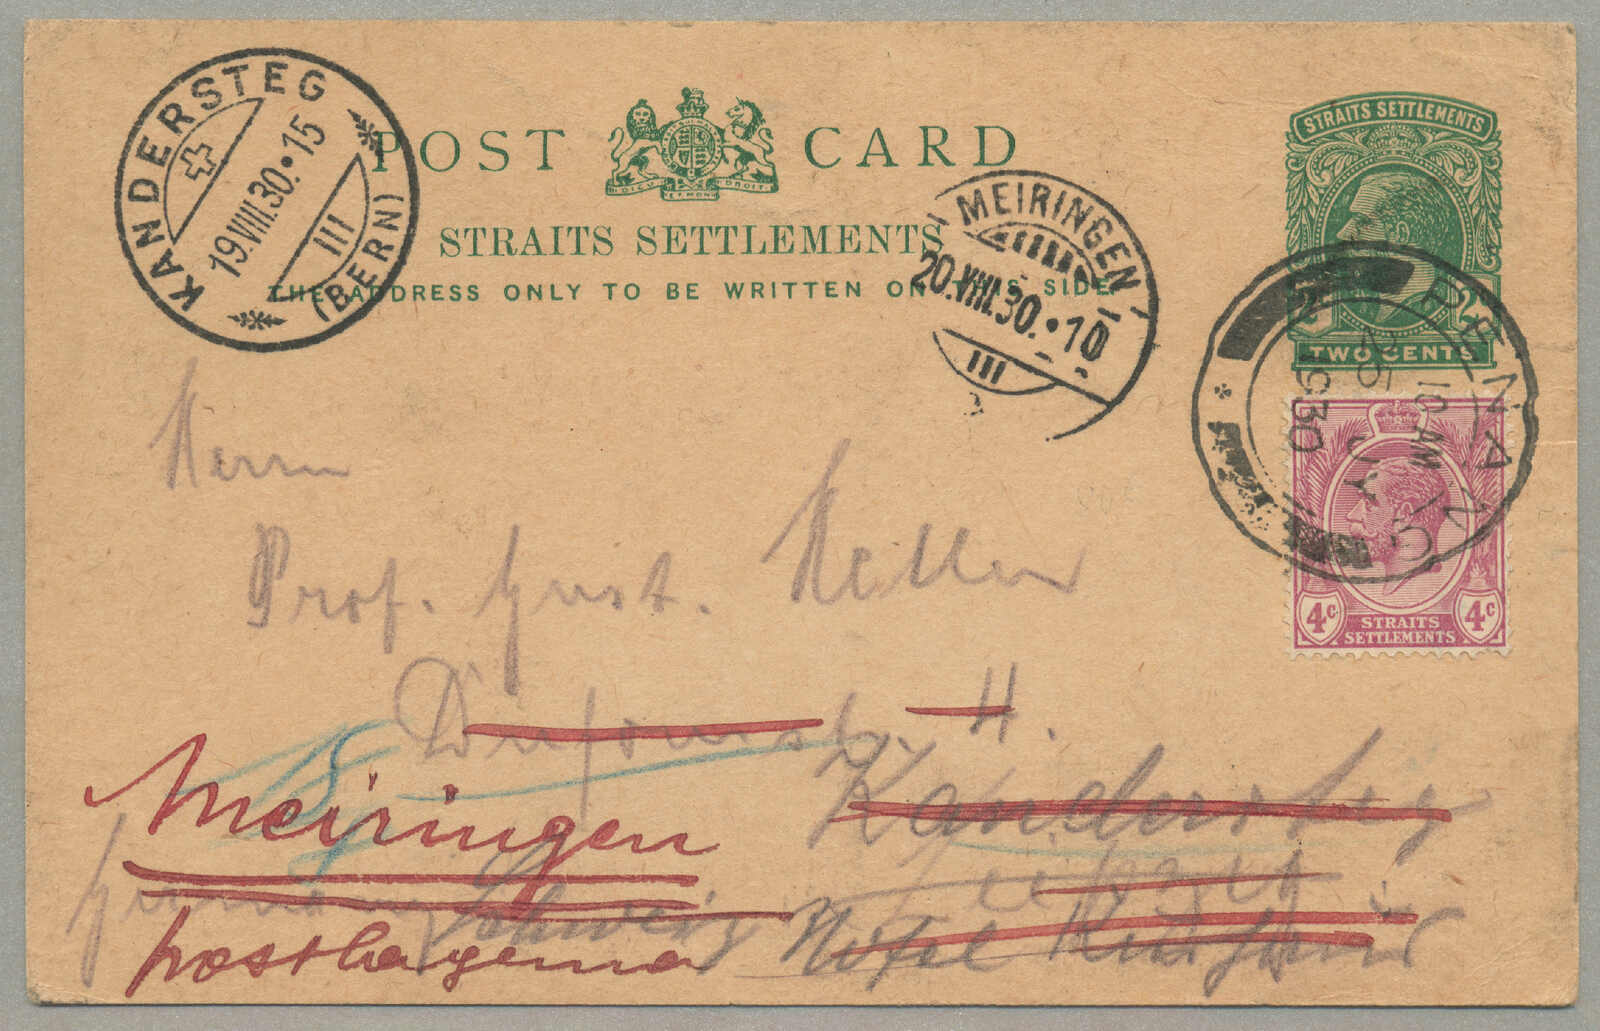 POST CARD
DIEU ET MON DROIT
STRAITS SETTLEMENTS
THE ADDRESS ONLY TO BE WRITTEN ON THIS SIDE
KANDERSTEG
19.VIII.30.15
III
(BERN)
MEIRINGEN
20.VIII.30.10
III
STRAITS SETTLEMENTS
2
TWO CENTS
PENANG
10 AM
1930
4c 4c
STRAITS
SETTLEMENTS
Herrn
Prof. Gust. Keller
Dufourstr. 4.
Meiringen Kandersteg
Leipzig
Germany Schweiz Hotel
postlagernd